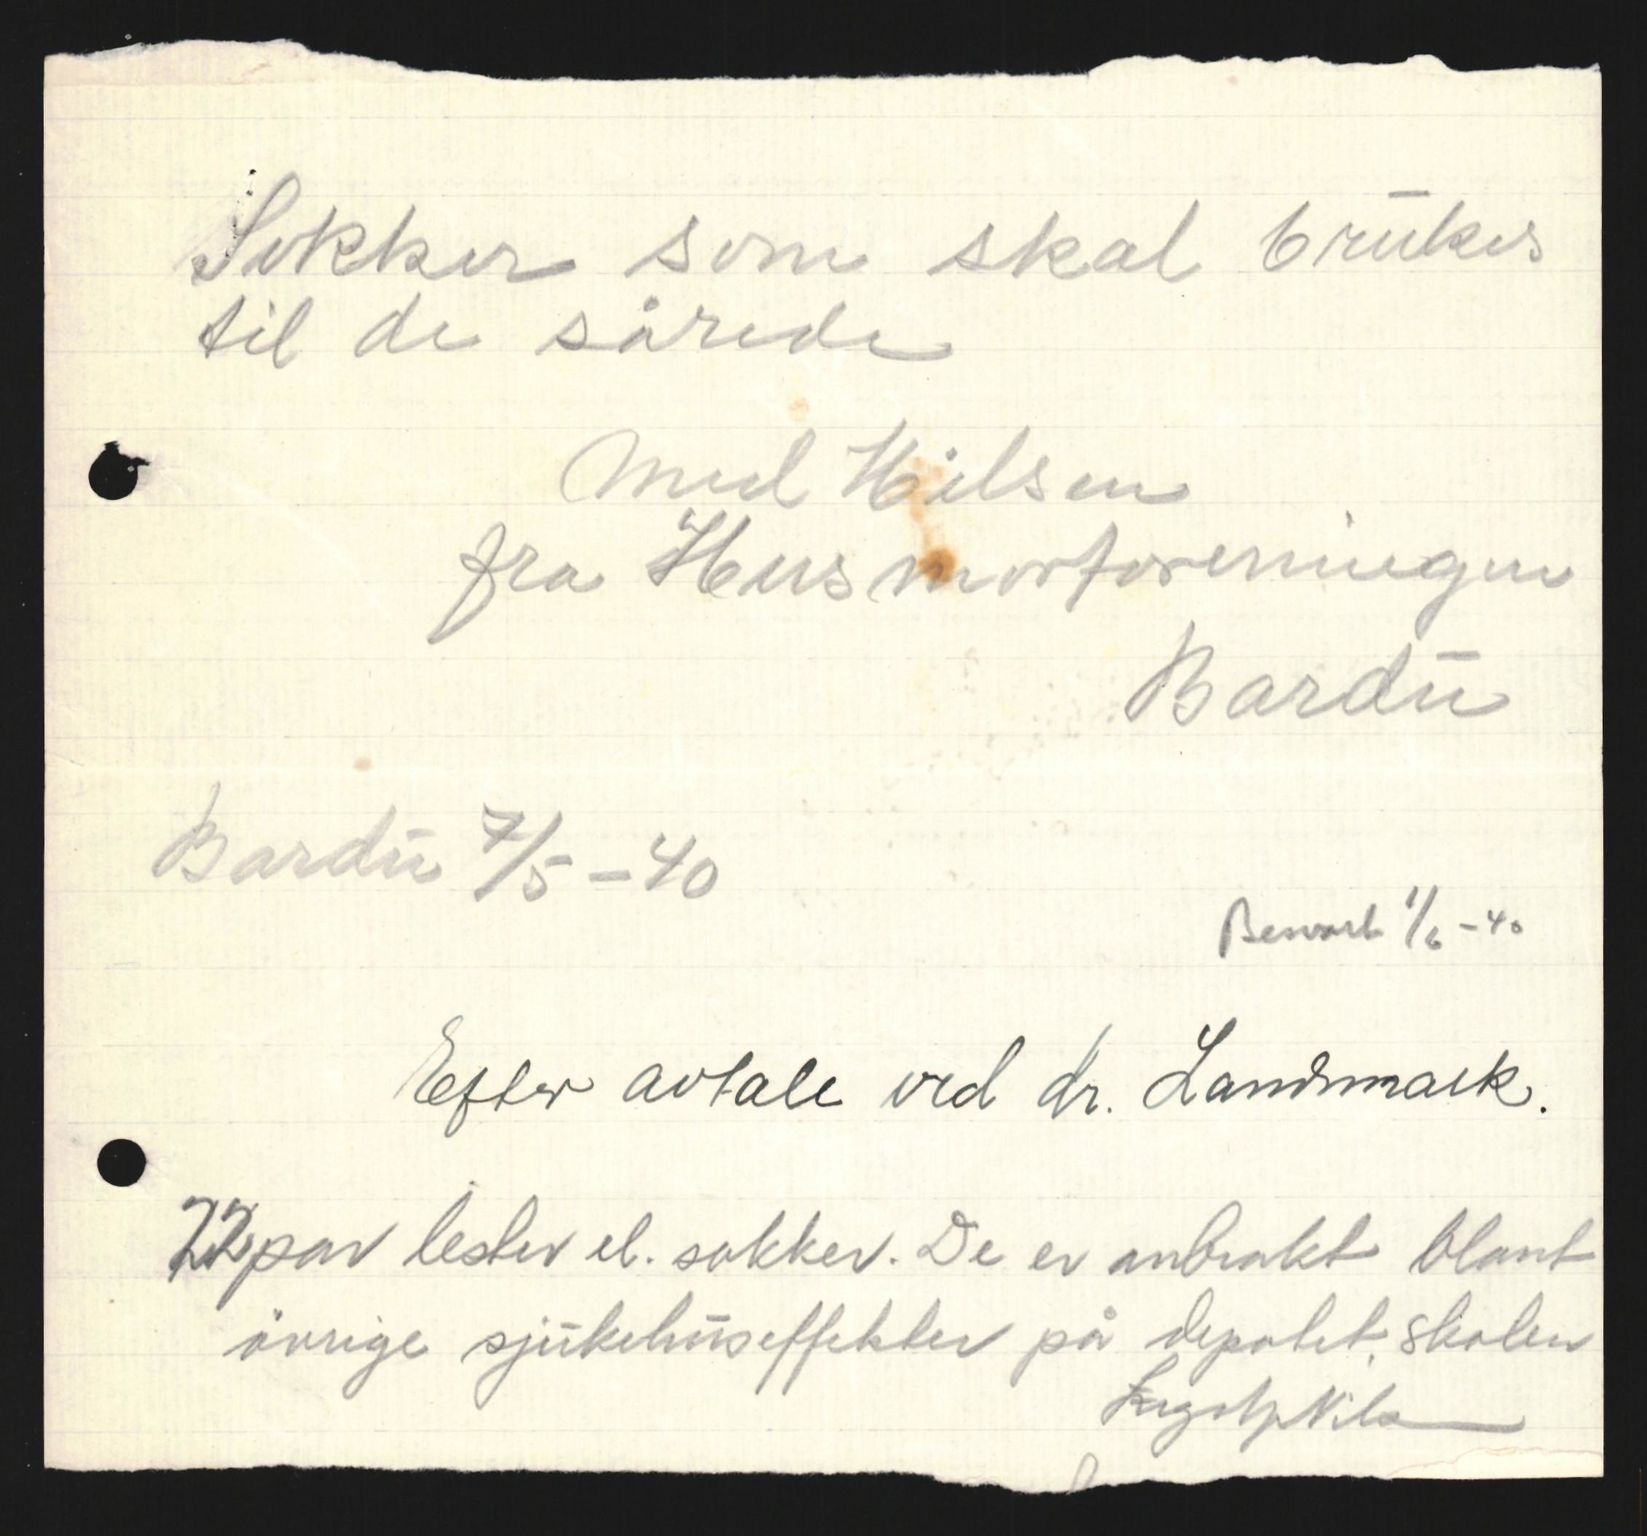 Sokker som skal brukes
til de sårede
Med Hilsen
fra Husmorforeningen
Bardu
Bardu 7/5 - 40
Besvart 1/6 - 40
Efter avtale ved dr. Landmark.
22 par lester el. sokker. De er anbrakt blant
övrige sjukehuseffekter på depotet, skolen